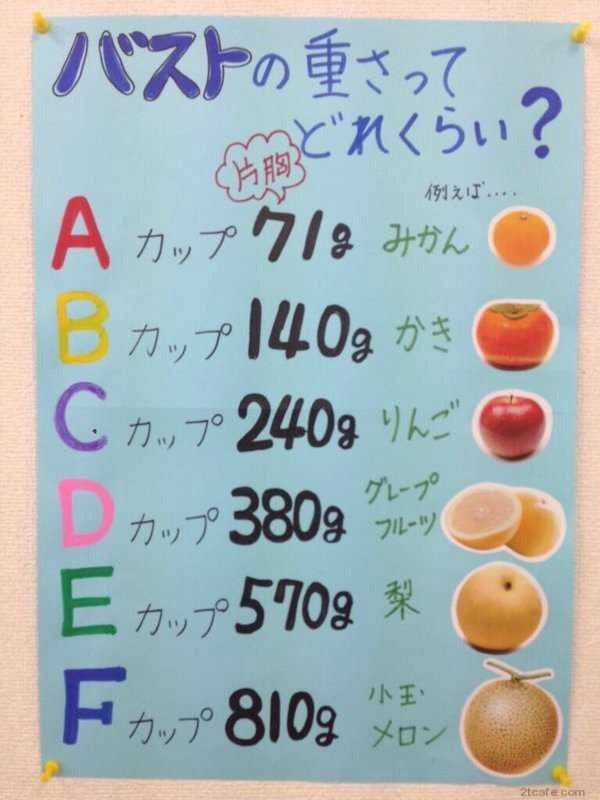 バストの重さって
どれくらい?
片胸
例えば....
A カップ 71g みかん
B カップ 140g かき
C カップ 240g りんご
D カップ 380g グレープ
フルーツ
E カップ 570g 梨
F カップ 810g 小玉
メロン
2tcafe.com